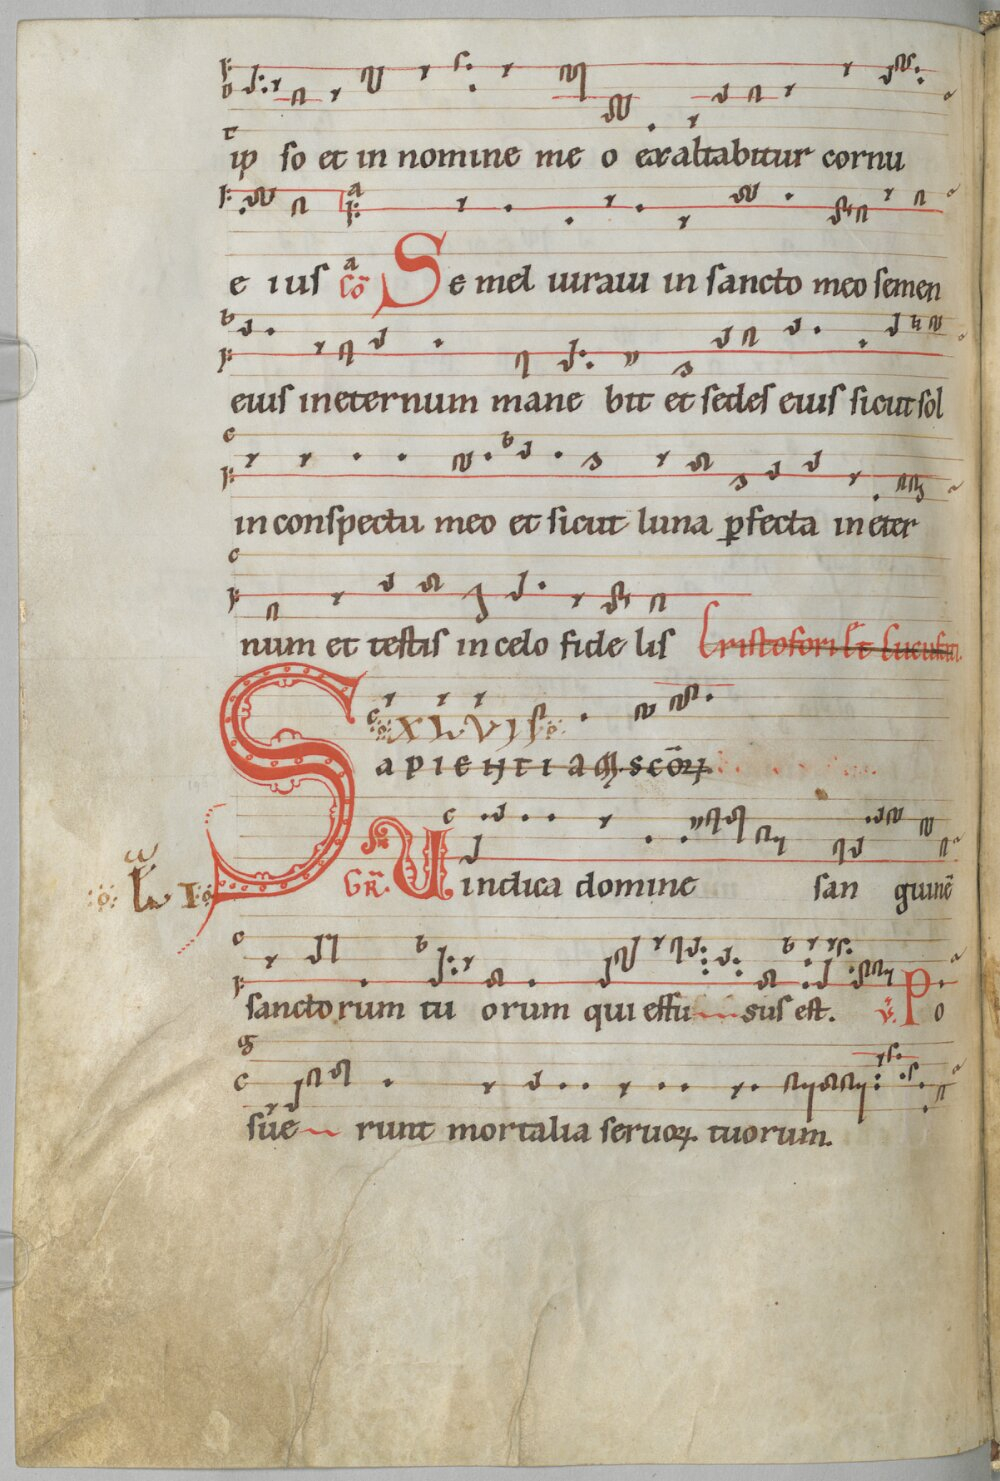 ip so et in nomine me o exaltabitur cornu
e ius Cō Semel iuraui in sancto meo semen
eius in eternum mane bit et sedes eius sicut sol
in conspectu meo et sicut luna p̄fecta in eter
num et testis in celo fide lis Cristofori Et Cucufati.
XLVIJ
SAPIENTIAM SCŌꝜ
GR̄. Uindica domine san guinē
LI
sanctorum tu orum qui effu sus est. V̄. Po
sue runt mortalia seruoꝝ tuorum.